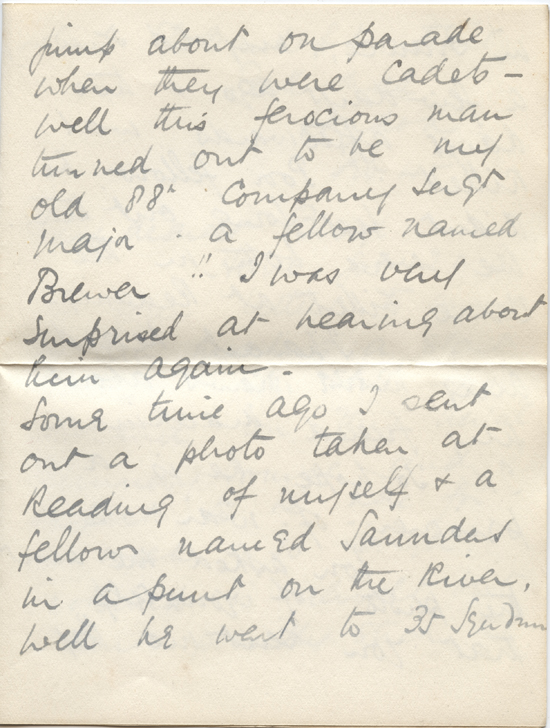 jump about on parade
when they were Cadets -
well this ferocious man
turned out to be my
old 88th Company Sergt
Major . a fellow named
Brewer !! I was very
surprised at hearing about
him again -
Some time ago I sent
out a photo taken at
Reading of myself & a
fellow named Saunders
in a punt on the River,
well he went to 35 Squdrn